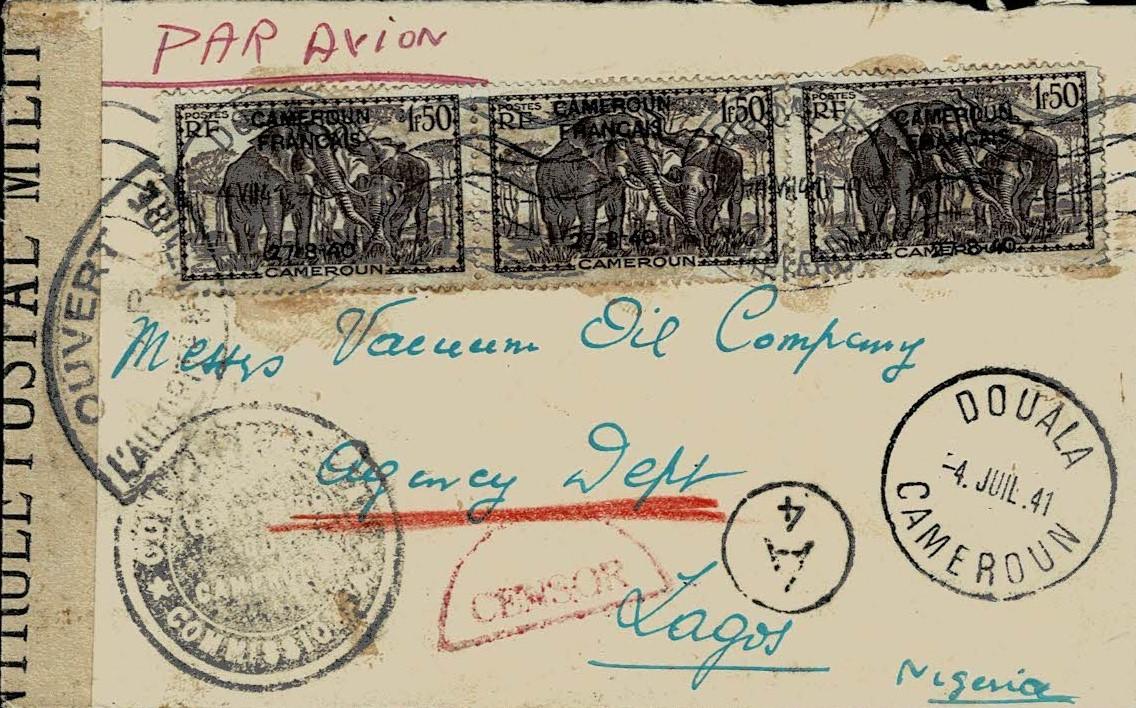 PAR AVION
POSTES
RF
CAMEROUN
FRANCAIS
1F50
27-8-40
CAMEROUN
POSTES
RF
CAMEROUN
FRANCAIS
1F50
27-8-40
CAMEROUN
POSTES
RF
CAMEROUN
FRANCAIS
1F50
CAMEROUN
NTROLE POSTAL MILIT
OUVERT
Messrs Vacuum Oil Company
Agency Dept
Lagos
Nigeria
DOUALA
-4. JUIL.41
CAMEROUN
A
4
CENSOR
COMMISSION